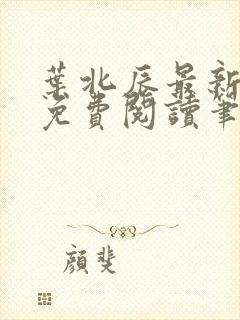 葉北辰最新
免費閱讀筆
顏斐